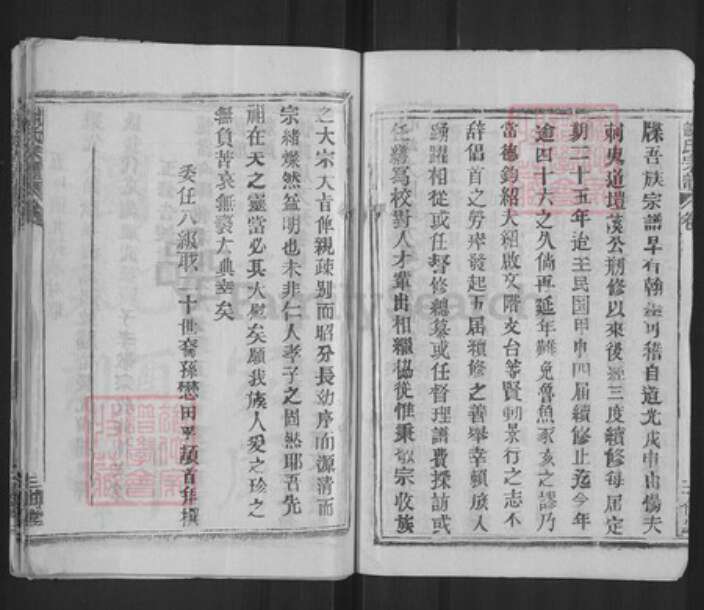 牒吾族宗譜早有翰墨可稽自道光戊申由傷夫
刺史道壇漢公刱修以來後經三度續修每屆定
期二十五年迨至民国甲申四届續修止迄今年
逾四十六之久倘再延年難免魯魚豕亥之謬乃
當德鈞紹大紹啟文階支台等賢劬景行之志不
辞倡首之勞瘁發起五届續修之善舉幸頼族人
踴躍相從或任督修總纂或任督理譜費採訪或
任繕寫校對人才輩出相繼協從惟秉敬宗收族
之大宗大旨俾親疎别而昭分長幼序而源清而
宗緒燦然爲明也未非仁人孝子之固然耶吾先
祖在天之靈當必其大慰矣願我族人爱之珍之
無負苦衷無褻大典幸矣
委任八級职 十世裔孫懋田 頓首拜撰